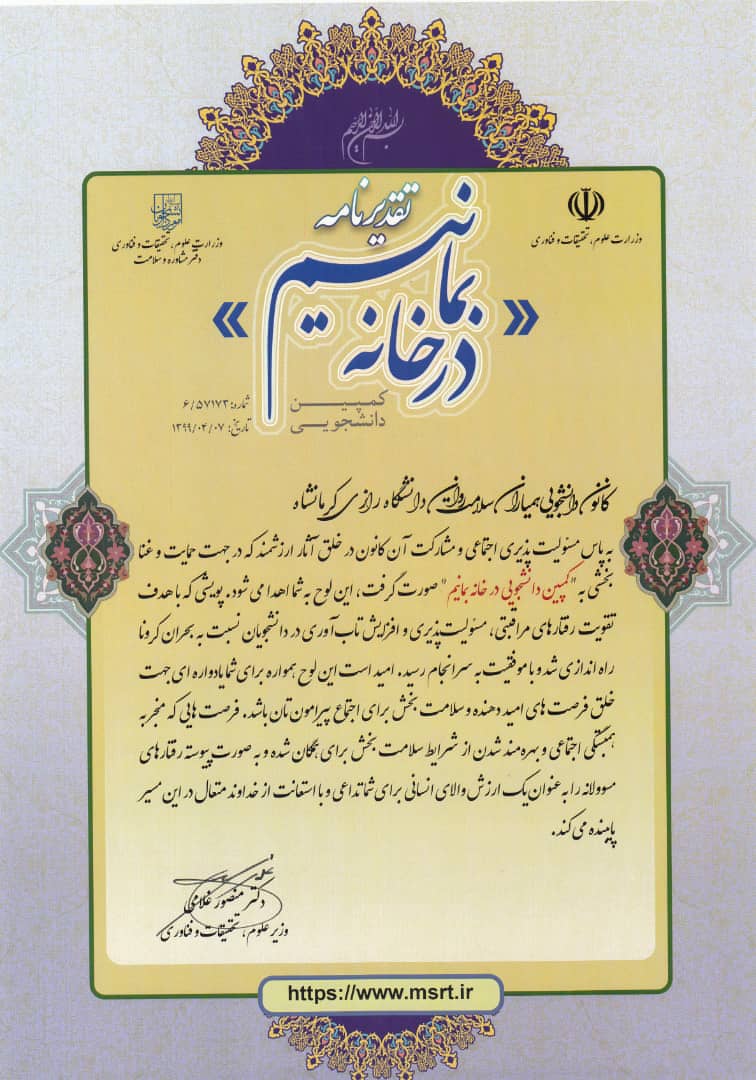 بسم الله الرحمن الرحیم
تقدیرنامه
وزارت علوم، تحقیقات و فناوری
وزارت علوم، تحقیقات و فناوری
دفتر مشاوره و سلامت
« در خانه بمانیم »
کمپین
دانشجویی
شماره: ۶/۵۷۱۷۳
تاریخ: ۱۳۹۹/۰۴/۰۷
کانون دانشجویی همیاران سلامت روان دانشگاه رازی کرمانشاه
به پاس مسئولیت پذیری اجتماعی و مشارکت آن کانون در خلق آثار ارزشمند که در جهت حمایت و غنا
بخشی به "کمپین دانشجویی در خانه بمانیم" صورت گرفت، این لوح به شما اهدا می شود. پویشی که با هدف
تقویت رفتارهای مراقبتی، مسئولیت پذیری و افزایش تاب آوری در دانشجویان نسبت به بحران کرونا
راه اندازی شد و با موفقیت به سرانجام رسید. امید است این لوح همواره برای شما یادواره ای جهت
خلق فرصت های امید دهنده و سلامت بخش برای اجتماع پیرامون تان باشد. فرصت هایی که منجر به
همبستگی اجتماعی و بهره مند شدن از شرایط سلامت بخش برای همگان شده و به صورت پیوسته رفتارهای
مسوولانه را به عنوان یک ارزش والای انسانی برای شما تداعی و با استعانت از خداوند متعال در این مسیر
پاینده می کند.
دکتر منصور غلامی
وزیر علوم، تحقیقات و فناوری
https://www.msrt.ir